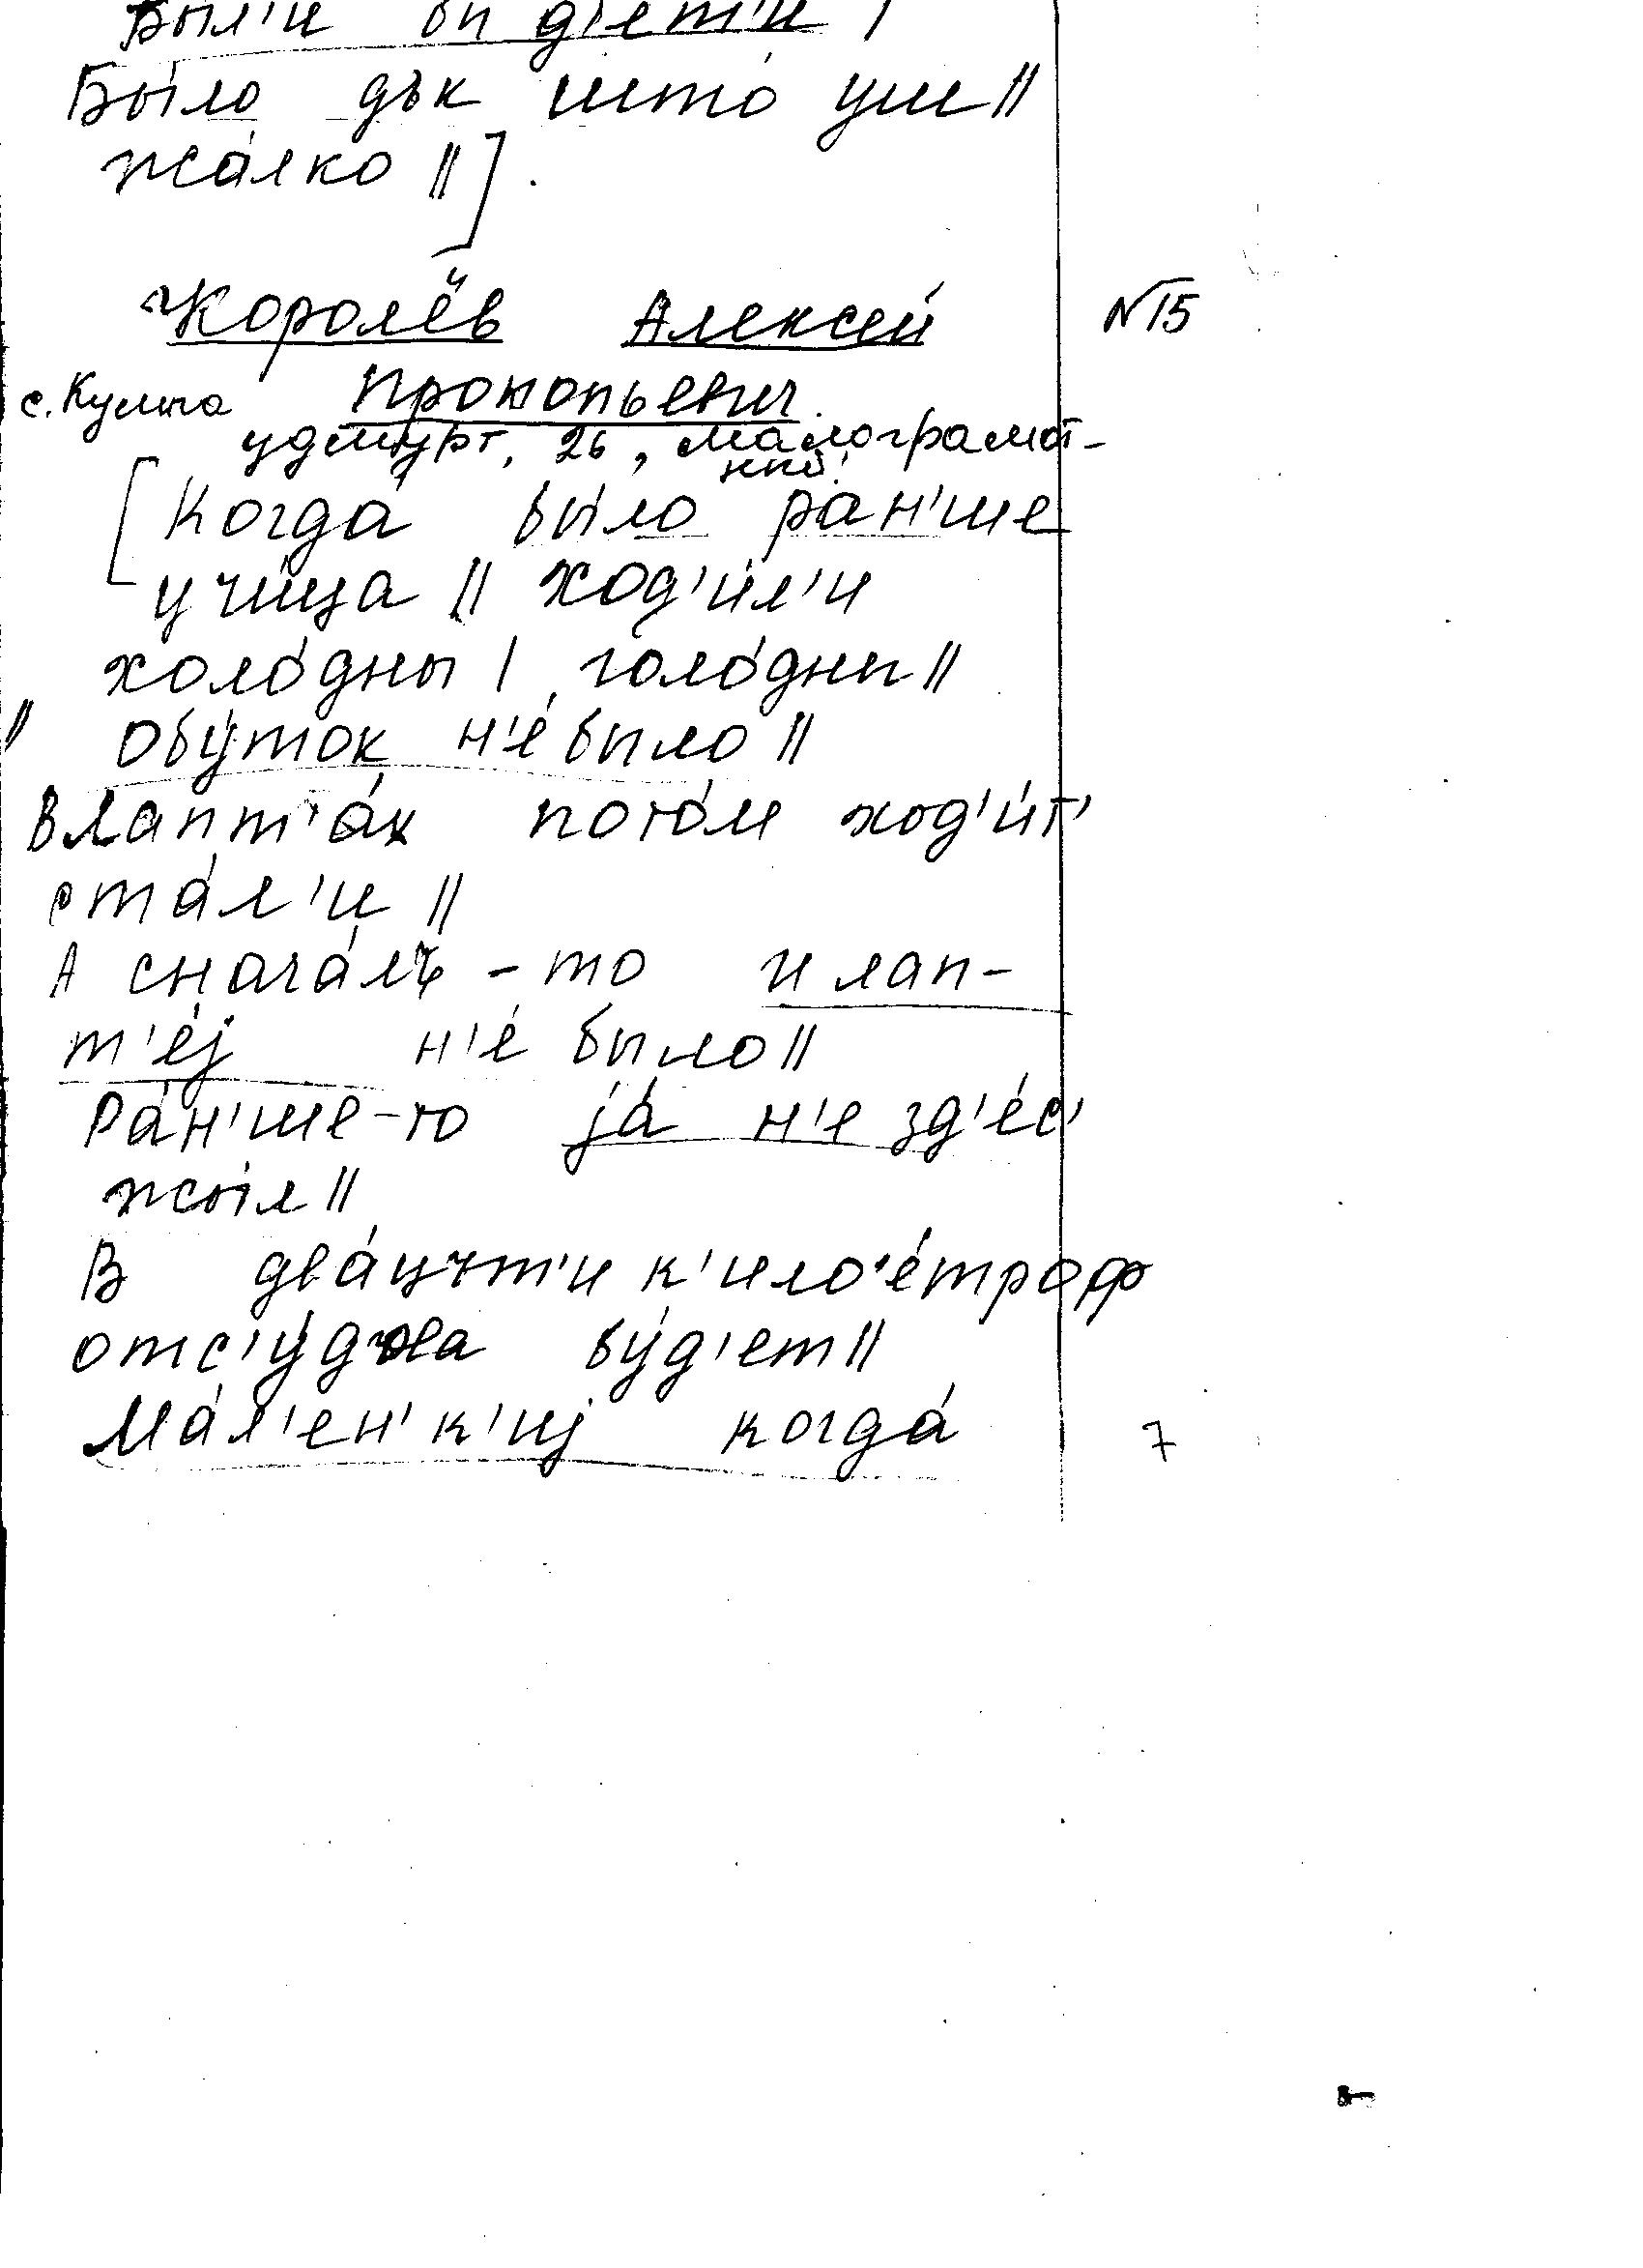 Были бы д'ет'и |
Бы́ло дък што́ уш ||
жа́лко || ] .
Королёв Алексей №15
с. Кулига Прокопьевич.
удмурт, 26, малограмот-
ный.
[ Когда́ бы́ло ра́н'ше
учи́ца || ход'и́л'и
холо́дны | голо́дны ||
|| обу́ток н'е́ было ||
В лапт'а́х пото́м ход'и́т'
ста́л'и ||
А снача́лъ - то и лап-
т'е́j н'е́ было ||
Ра́н'ше-то jа́ н'е зд'е́с'
жы́л ||
В два́цът'и к'ило'е́троф
отс'у́дъва бу́д'ет ||
Ма́л'ен'к'иj когда́ 7